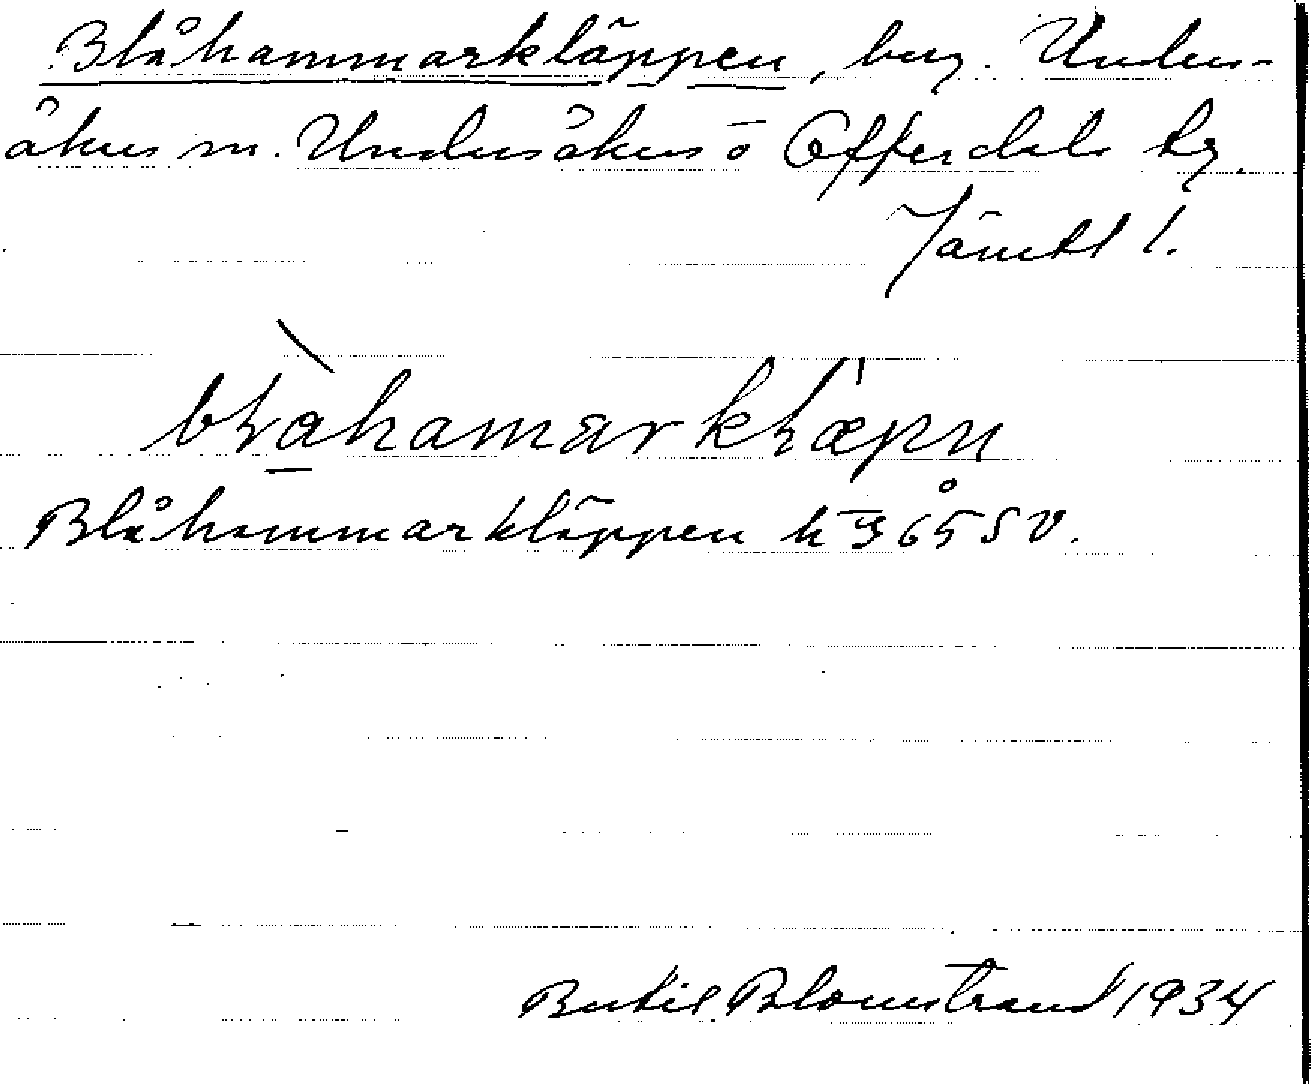 Blåhammarkläppen, berg. Unders-
åkers sn. Undersåkers o Offerdals tg.
Jämtl l.
blåhamarklæpn
Blåhammarkläppen k 36 5 SV.
Bertil Blomstrand 1934